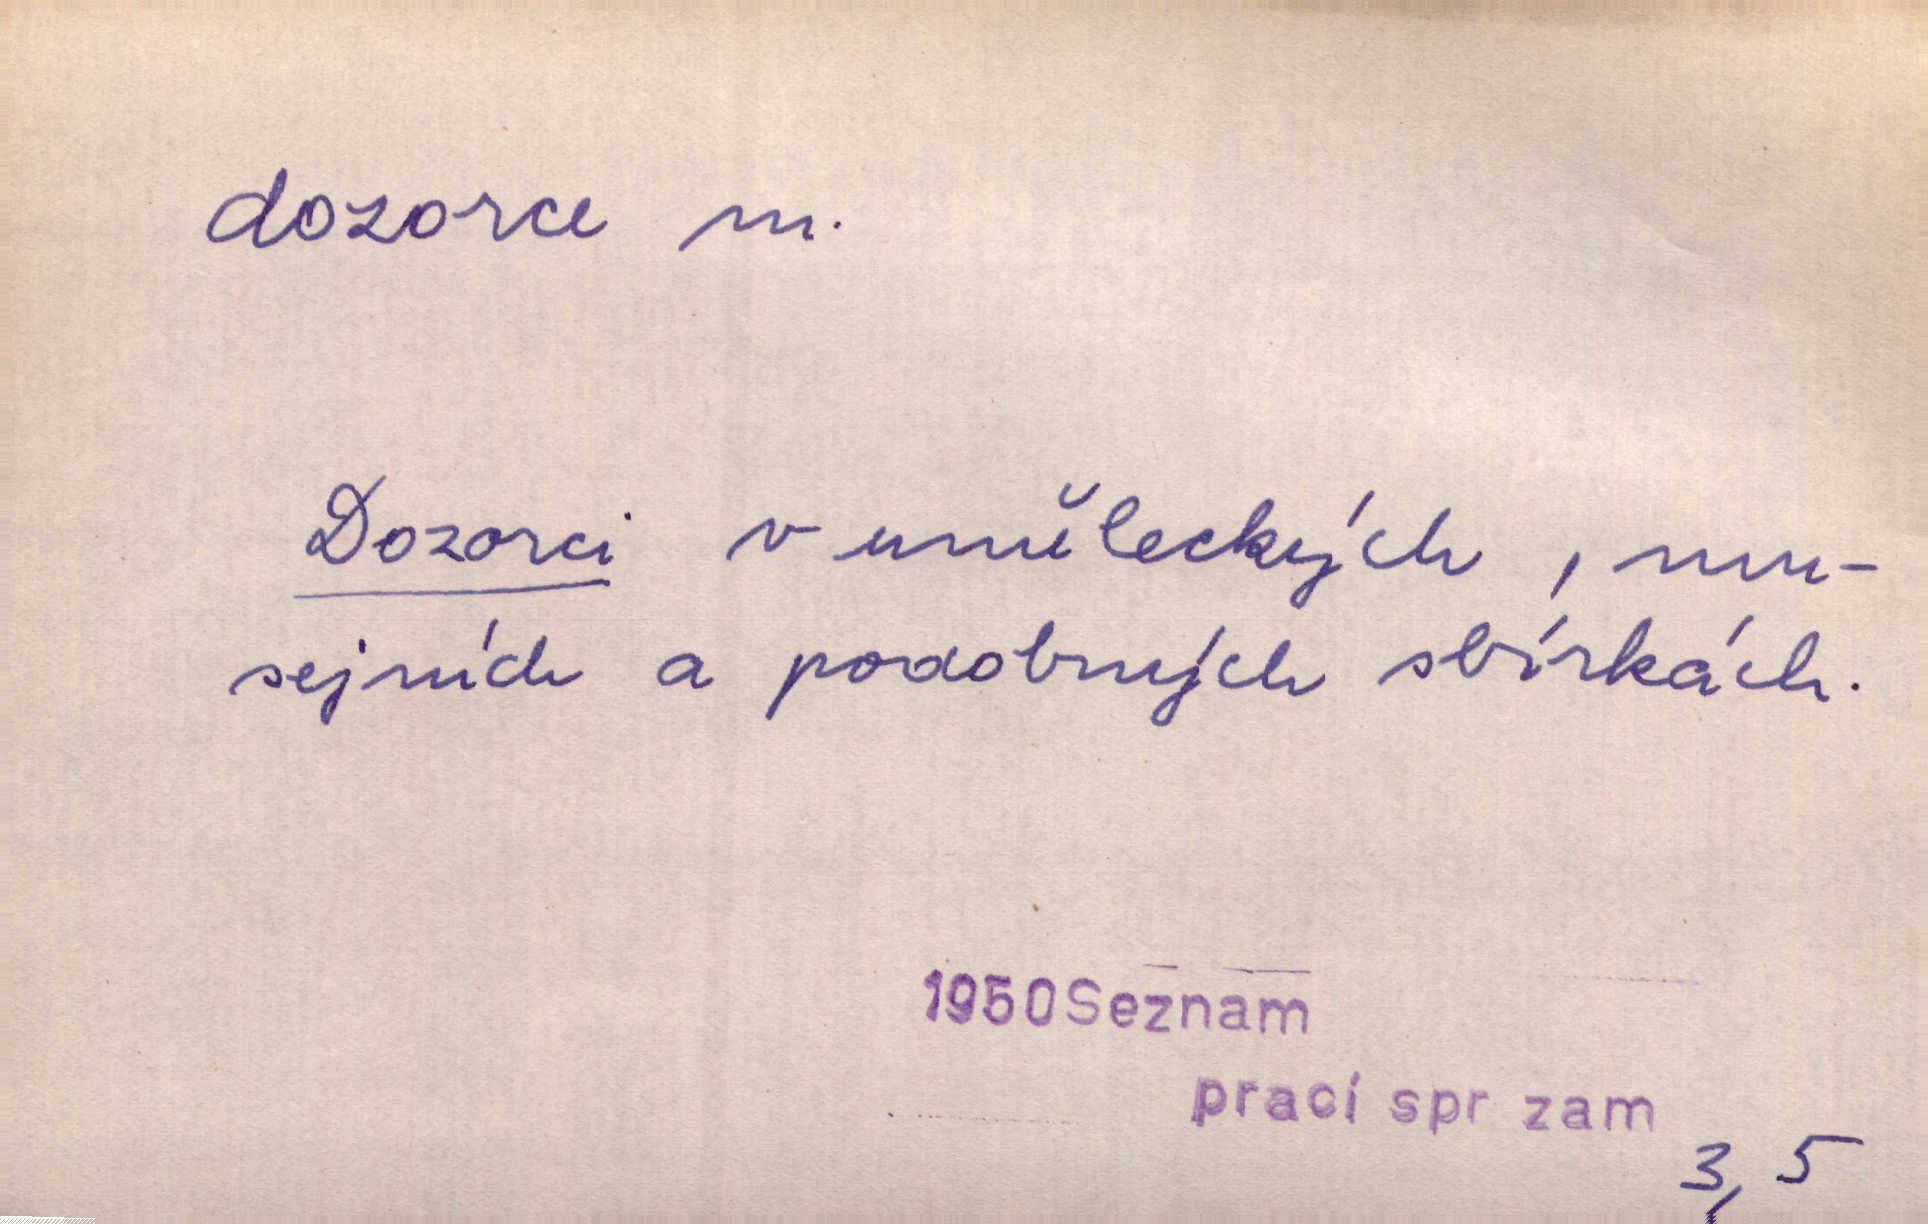 dozorce m.
Dozorci v uměleckých, mu-
sejních a podobných sbírkách.
1950Seznam
prací spr zam
3, 5